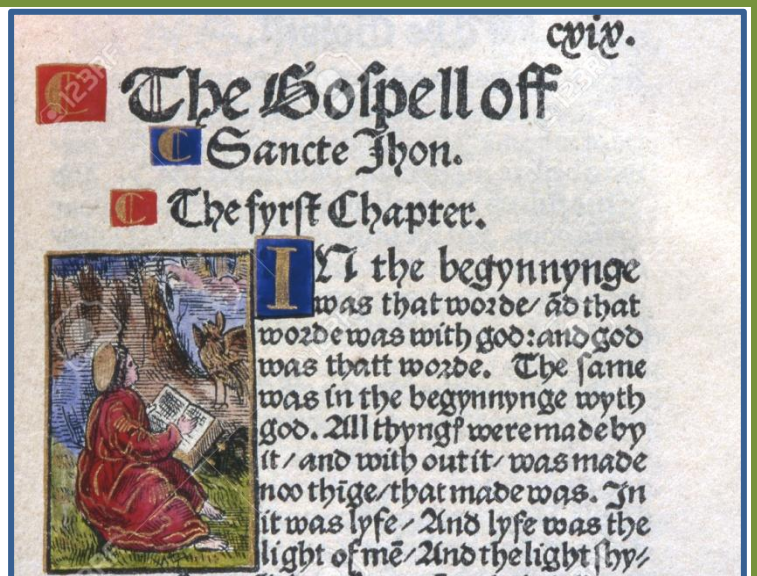 cxix.
C The Goſpell off
C Sancte Jhon.
C The fyrſt Chapter.
IN the begynnynge
was that worde/ ād that
worde was with god: and god
was thatt worde. The ſame
was in the begynnynge wyth
god. All thyngꝭ were made by
it/ and with out it/ was made
noo thīge/ that made was. In
it was lyfe/ And lyfe was the
light of mē/ And the light ſhy/